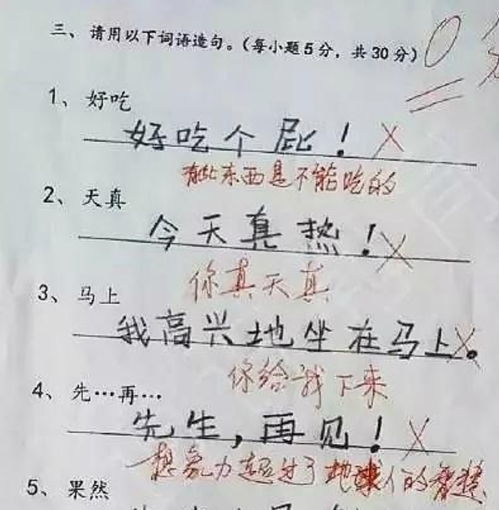 三、请用以下词语造句。(每小题5分，共30分) 0
1、好吃
好吃个屁！
有些东西是不能吃的
2、天真
今天真热！
你真天真
3、马上
我高兴地坐在马上。
你给我下来
4、先…再…
先生，再见！
想象力超过了地球人的智慧
5、果然